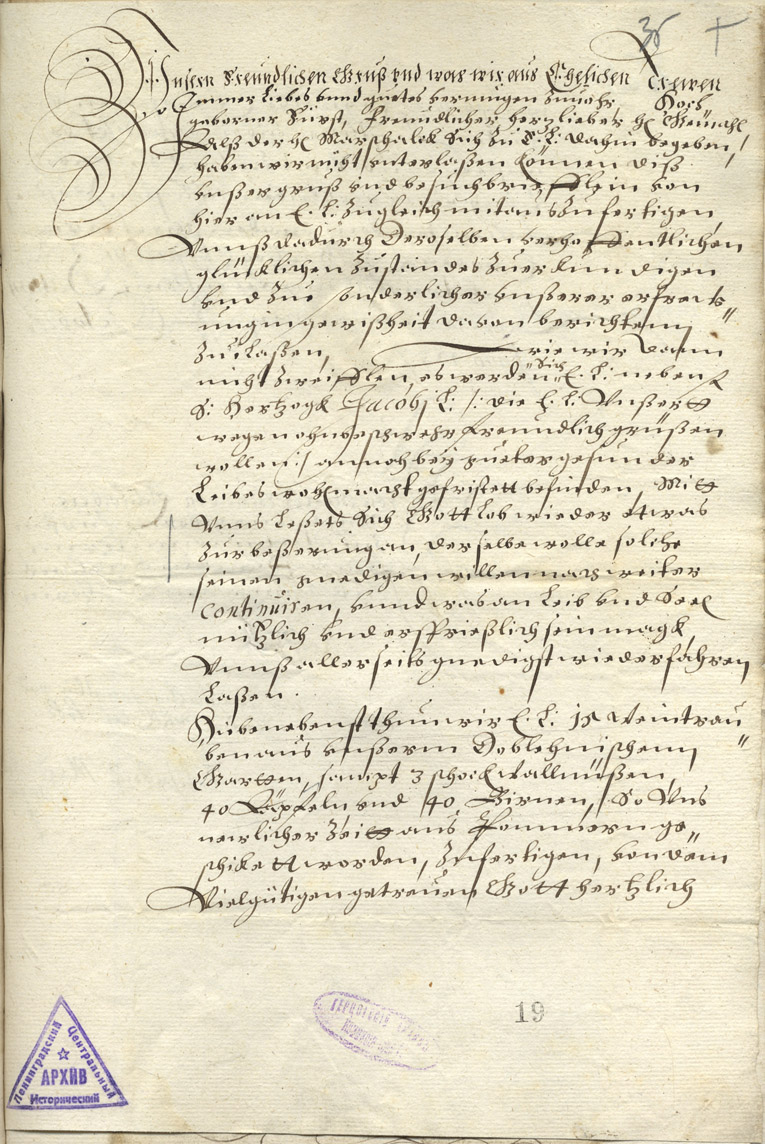 35 +
Unsern Freundlichen Gruß und was wir aus Ehelichen trewen
Immer Liebes unnd guetes vermugen Zuuohr, Hoch
geborner Fürst, Freundlicher hertzlieber H Gemahl
Alß der H Marschalck Sich Zu E. L. dahin begeben,
haben wir nicht unterlaßen können diß
unßer gruß und besuchbriefflein von
hier an E. L. Zugleich mit aus Zufertigen,
Unnß dadurch Deroselben verhoffentlichen
glücklichen Zustandes Zuerkundigen
und Zue sonderlicher unßerer erfrew"
ung in gewißheit davon berichtenn
Zu Laßen, wie wir dann
nicht Zweifflen, es werden Sich E. L. neben
S. Hertzogk Jacobj L: /: die E. L. Unßert
wegen ohnbeschwehr freundlich grüßen
wollen :/ annoch bey gueter gesunder
Leibes wohlmacht gefristett befinden, Mitt
Unns Leßets Sich Gott Lob wieder etwas
Zur beßerung an, derselbe wolle solche
seinem gnedigen willen nach weiter
continuiren, unnd was an Leib und Seel
nützlich und ersprießlich sein magk,
Unnß allerseits gnedigst wiederfahren
Laßen.
Hiebenebenst thun wir E. L. 18 Weintrau"
ben aus unßerm Doblehnischenn
Gartten, sampt 3 schock Wallnüßen,
40 Äpfeln und 40 Birnen, So Uns
newlicher Zeitt aus Pommern ge"
schickett worden, Zufertigen, von dem
Vielgütigen getreuen Gott hertzlich
19
Ленинградский Центральный
АРХИВ
Исторический